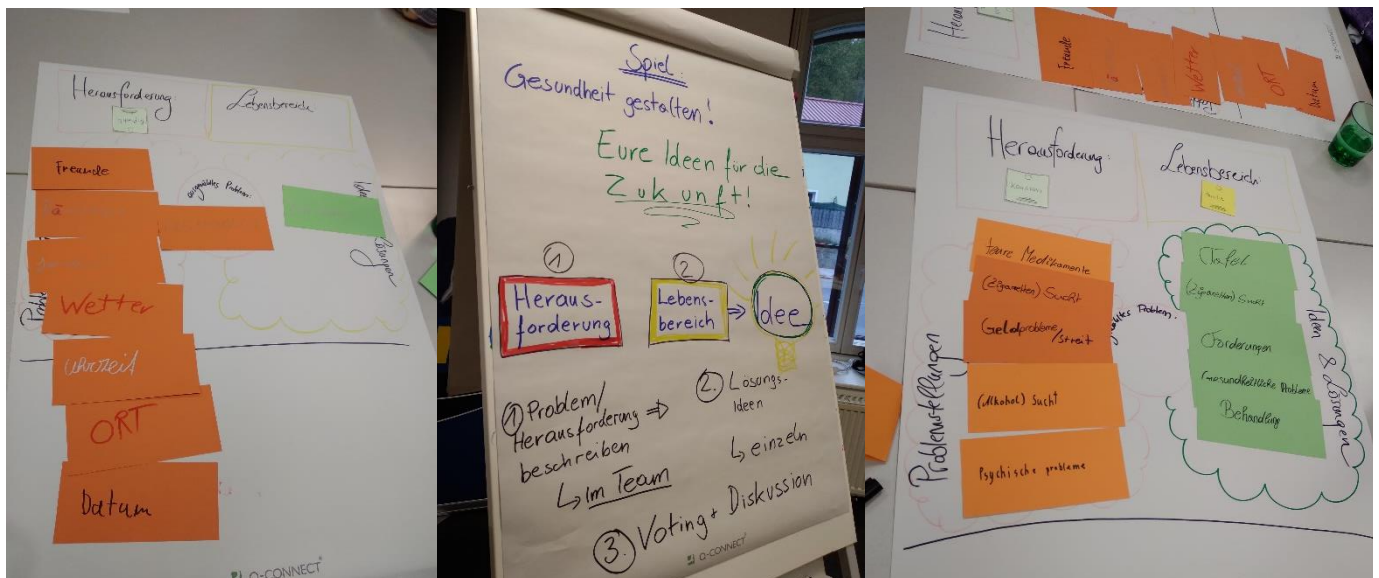 Herausforderung:
Lebensbereich
Freunde
ausgewähltes Problem:
Wetter
Uhrzeit
ORT
Datum
Q-CONNECT
Spiel:
Gesundheit gestalten!
Eure Ideen für die
Zukunft!
1
2
Heraus-
forderung
Lebens-
bereich
Idee
1 Problem/
Herausforderung
beschreiben
Im Team
2. Lösungs-
Ideen
einzeln
3. Voting + Diskussion
Q-CONNECT
Freunde
Wetter
ORT
Datum
Herausforderung:
Lebensbereich:
teure Medikamente
(Zigaretten) Sucht
Geldprobleme/Streit
(Alkohol) Sucht
Psychische probleme
Problemstellungen
Problem:
Tafel
(Zigaretten) Sucht
Förderungen
Behandlung
Ideen & Lösungen